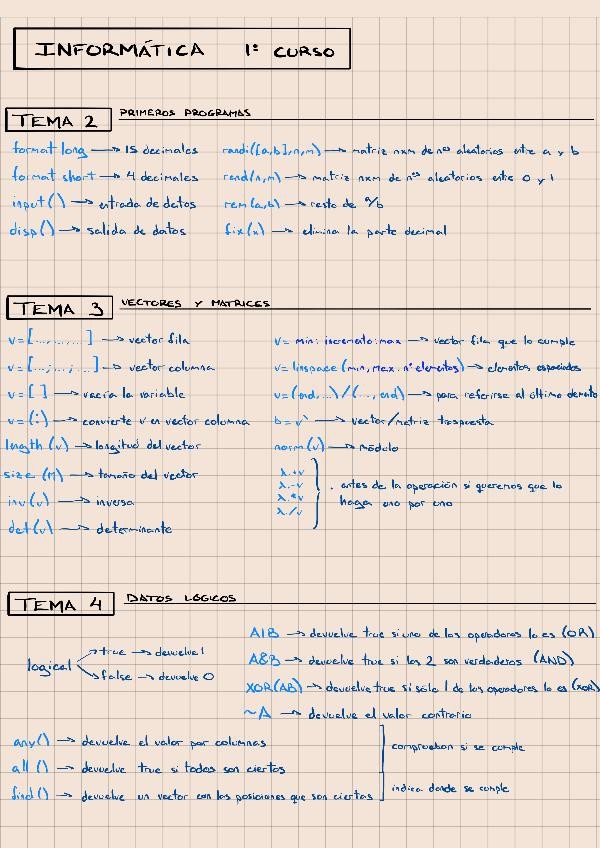 INFORMÁTICA 1º CURSO
TEMA 2 PRIMEROS PROGRAMAS
format long → 15 decimales
format short → 4 decimales
input() → entrada de datos
disp() → salida de datos
randi([a,b],n,m) → matriz nxm de nos aleatorios entre a y b
rand(n,m) → matriz nxm de nos aleatorios entre 0 y 1
rem(a,b) → resto de a/b
fix(x) → elimina la parte decimal
TEMA 3 VECTORES Y MATRICES
v=[...,...,...] → vector fila
v=[...;...;...] → vector columna
v=[ ] → vacía la variable
v=(:) → convierte v en vector columna
length (v) → longitud del vector
size (M) → tamaño del vector
inv(v) → inversa
det(v) → determinante
v= min: incremento:max → vector fila que lo cumple
v= linspace (min, max, nº elementos) → elementos espaciados
v=(end,...)/(..., end) → para referirse al último elemento
b=v' → vector/matriz traspuesta
norm(v) → módulo
λ.+v
λ.-v
λ.*v
λ./v
. antes de la operación si queremos que lo
haga uno por uno
TEMA 4 DATOS LÓGICOS
logical
true → devuelve 1
false → devuelve 0
A|B → devuelve true si uno de los operadores lo es (OR)
A&B → devuelve true si los 2 son verdaderos (AND)
XOR(AB) → devuelve true si sólo 1 de los operadores lo es (XOR)
~A → devuelve el valor contrario
any() → devuelve el valor por columnas
all () → devuelve true si todos son ciertos
find() → devuelve un vector con las posiciones que son ciertas
comprueban si se cumple
indica donde se cumple